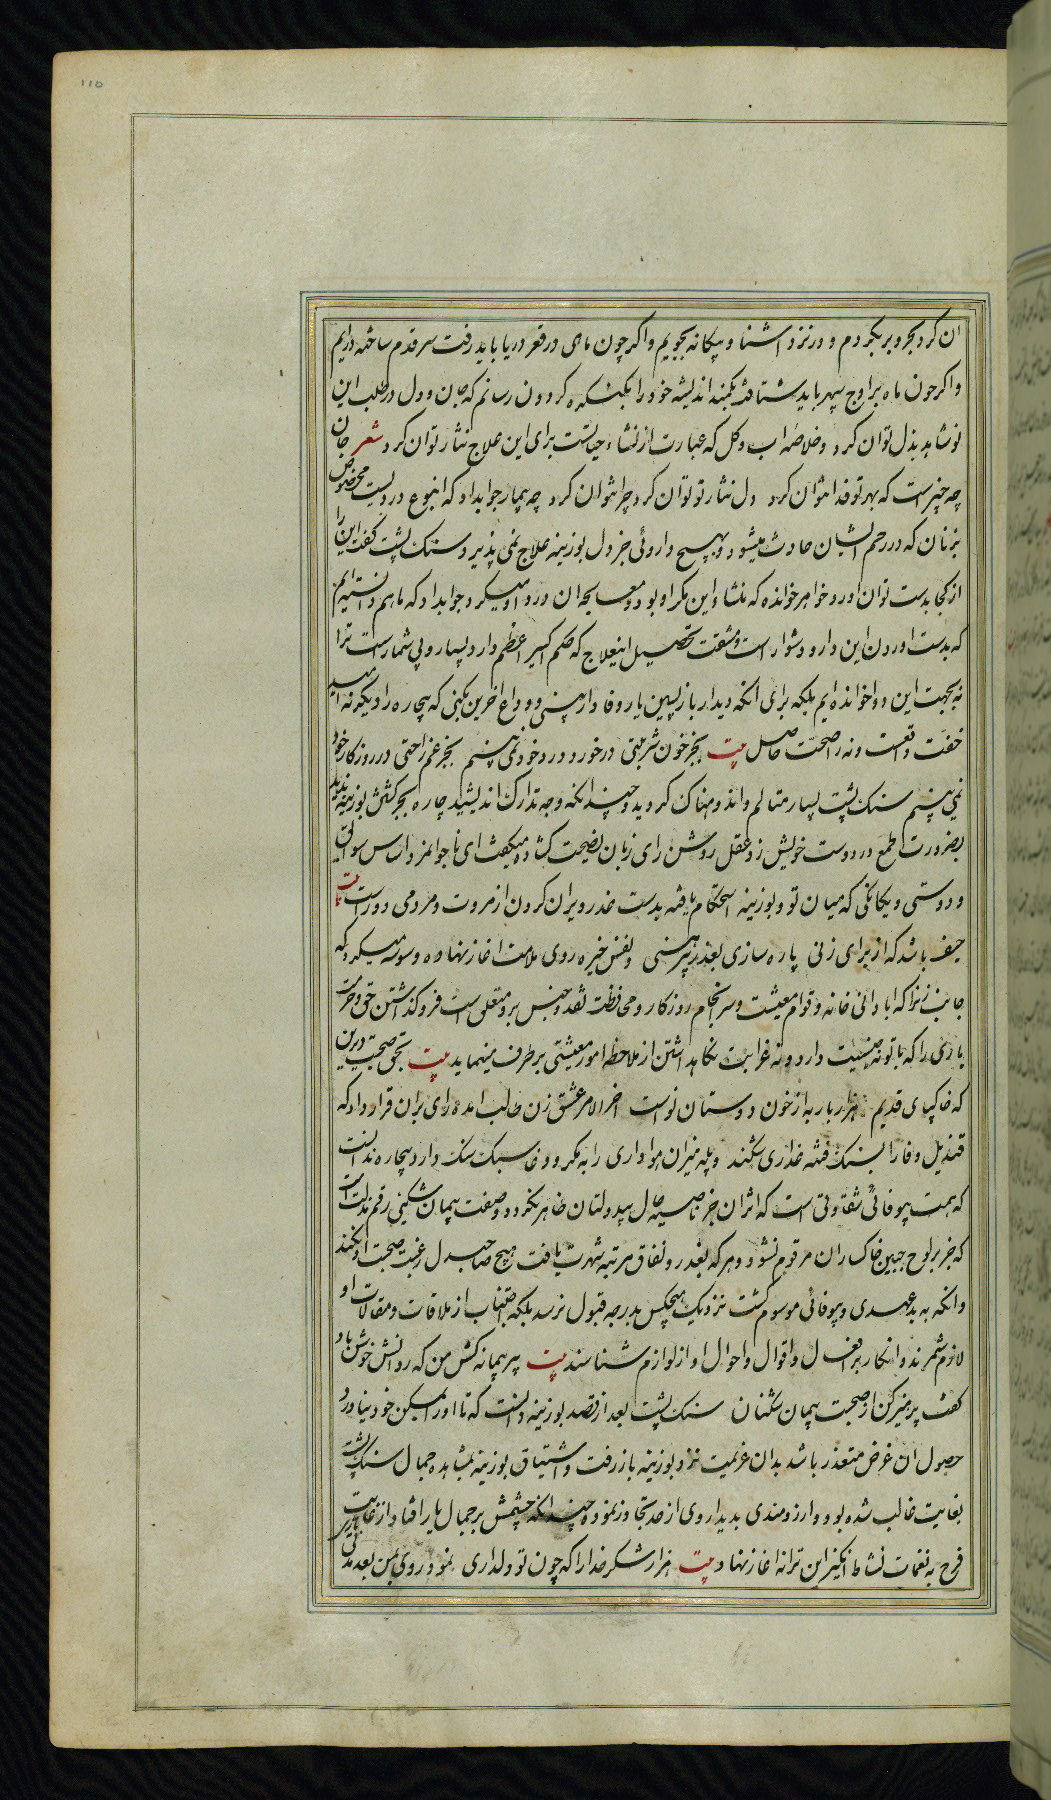 110
ان کرد بحر و بر بکردم و در نزد اشنا و بیکانه بجویم و اکر چون ماهی در قعر دریا باید رفت سر قدم ساخته درایم
و اکر چون ماه بر اوج سپهر باید شتافت بکمند اندیشه خود را بکنکره کردون رسانم که جان و دل در طلب این
نوشابه بذل توان کرد و خلاصه اب و کل که عبارت از نشاء حیاتست برای این علاج نثار توان کرد شعر جان
چه چیز است که بهر تو فدا نتوان کرد دل نثار تو توان کرد چرا نتوان کرد چه بیمار جواب داد که این نوع دردیست مخصوص
بزنان که در رحم ایشان حادث میشود و بهیچ داروئی جز دل بوزینه علاج نمی پذیرد سنک پشت کفت این را
از کجا بدست توان اورد خواهر خوانده که منشاء این مکر او بود و معالجه ان درد او میکرد جواب داد که ما هم دانسته ایم
که بدست اوردن این دارو دشوار است و مشقت تحصیل این علاج که حکم اکسیر اعظم دارد بسیار و بی شمار است ترا
نه بجهت این دوا خوانده ایم بلکه برای انکه دیدار بازپسین یار وفادار بینی و وداع اخرین بکنی که بیچاره را دیکر نه امید
خفت واقعست و نه راحت صحت حاصل بیت بجز خون شربتی در خورد درد خود نمی بینم بجز غم راحتی در روزکار خود
نمی بینم سنک پشت بسیار متالم و اندوهناک کردید و چندانکه وجه تدارک اندیشید چاره بجز کشتن بوزینه ندید
بضرورت طمع در دوست خویش زد عقل روشن رای زبان نصیحت کشاده میکفت ای ناجوانمرد اساس سوابق
و دوستی و یکانکی که میان تو و بوزینه استحکام یافته بدست غدر ویران کردن از مروت و مردمی دور است بیت
حیف باشد که از برای زنی پاره سازی بغدر پیرهنی و نفس خیره روی ملامت اغاز نهاده وسوسه میکرد که
جانب زن را که ابادانی خانه و قوام معیشت و سرانجام روزکار و محافظت نقد و جنس برو متعلق است فروکذاشتن حق و حرمت
یاری را که با تو نه جنسیت دارد و نه قرابت نکاهداشتن از ملاحظه امور معیشتی بر طرف مینماید بیت بحق صحبت دیرین
که خاکپای قدیم هزار بار به از خون دوستان نو است اخر الامر عشق زن غالب امده رای بران قرار داد که
قندیل وفا را بسنک فتنه غداری بشکند و پله میزان هواداری را به مکر و دغا سبک سنک دارد بیچاره ندانست
که سمت بیوفائی شقاوتی است که اثر ان جز بر ناصیه حال بیدولتان ظاهر نکردد و صفت پیمان شکنی رقم مذلت است
که جز بر لوح جبین خاک ران مرقوم نشود و هر که بغدر و نفاق مرتبه شهرت یافت هیچ صاحبدل رغبت صحبت او نکند
و انکه به بدعهدی و بیوفائی موسوم کشت نزدیک هیچکس بدرجه قبول نرسد بلکه اجتناب از ملاقات و مقالات او
لازم شمرند و انکار بر افعال و اقوال و احوال او از لوازم شناسند بیت پیر پیمانه کش من که روانش خوش باد
کفت پرهیز کن از صحبت پیمان شکنان سنک پشت بعد از قصد بوزینه دانست که تا او را بمسکن خود نیاورد
حصول ان غرض متعذر باشد بدان عزیمت نزد بوزینه باز رفت و اشتیاق بوزینه بمشاهده جمال سنک پشت
بغایت غالب شده بود و ارزومندی بدیدار وی از حد تجاوز نموده چندانکه چشمش بر جمال یار افتاد از غایت
فرح به نغمات نشاط انکیز این ترانه اغاز نهاد بیت هزار شکر خدا را که چون تو دلداری نمود روی بمن بعد مدتی